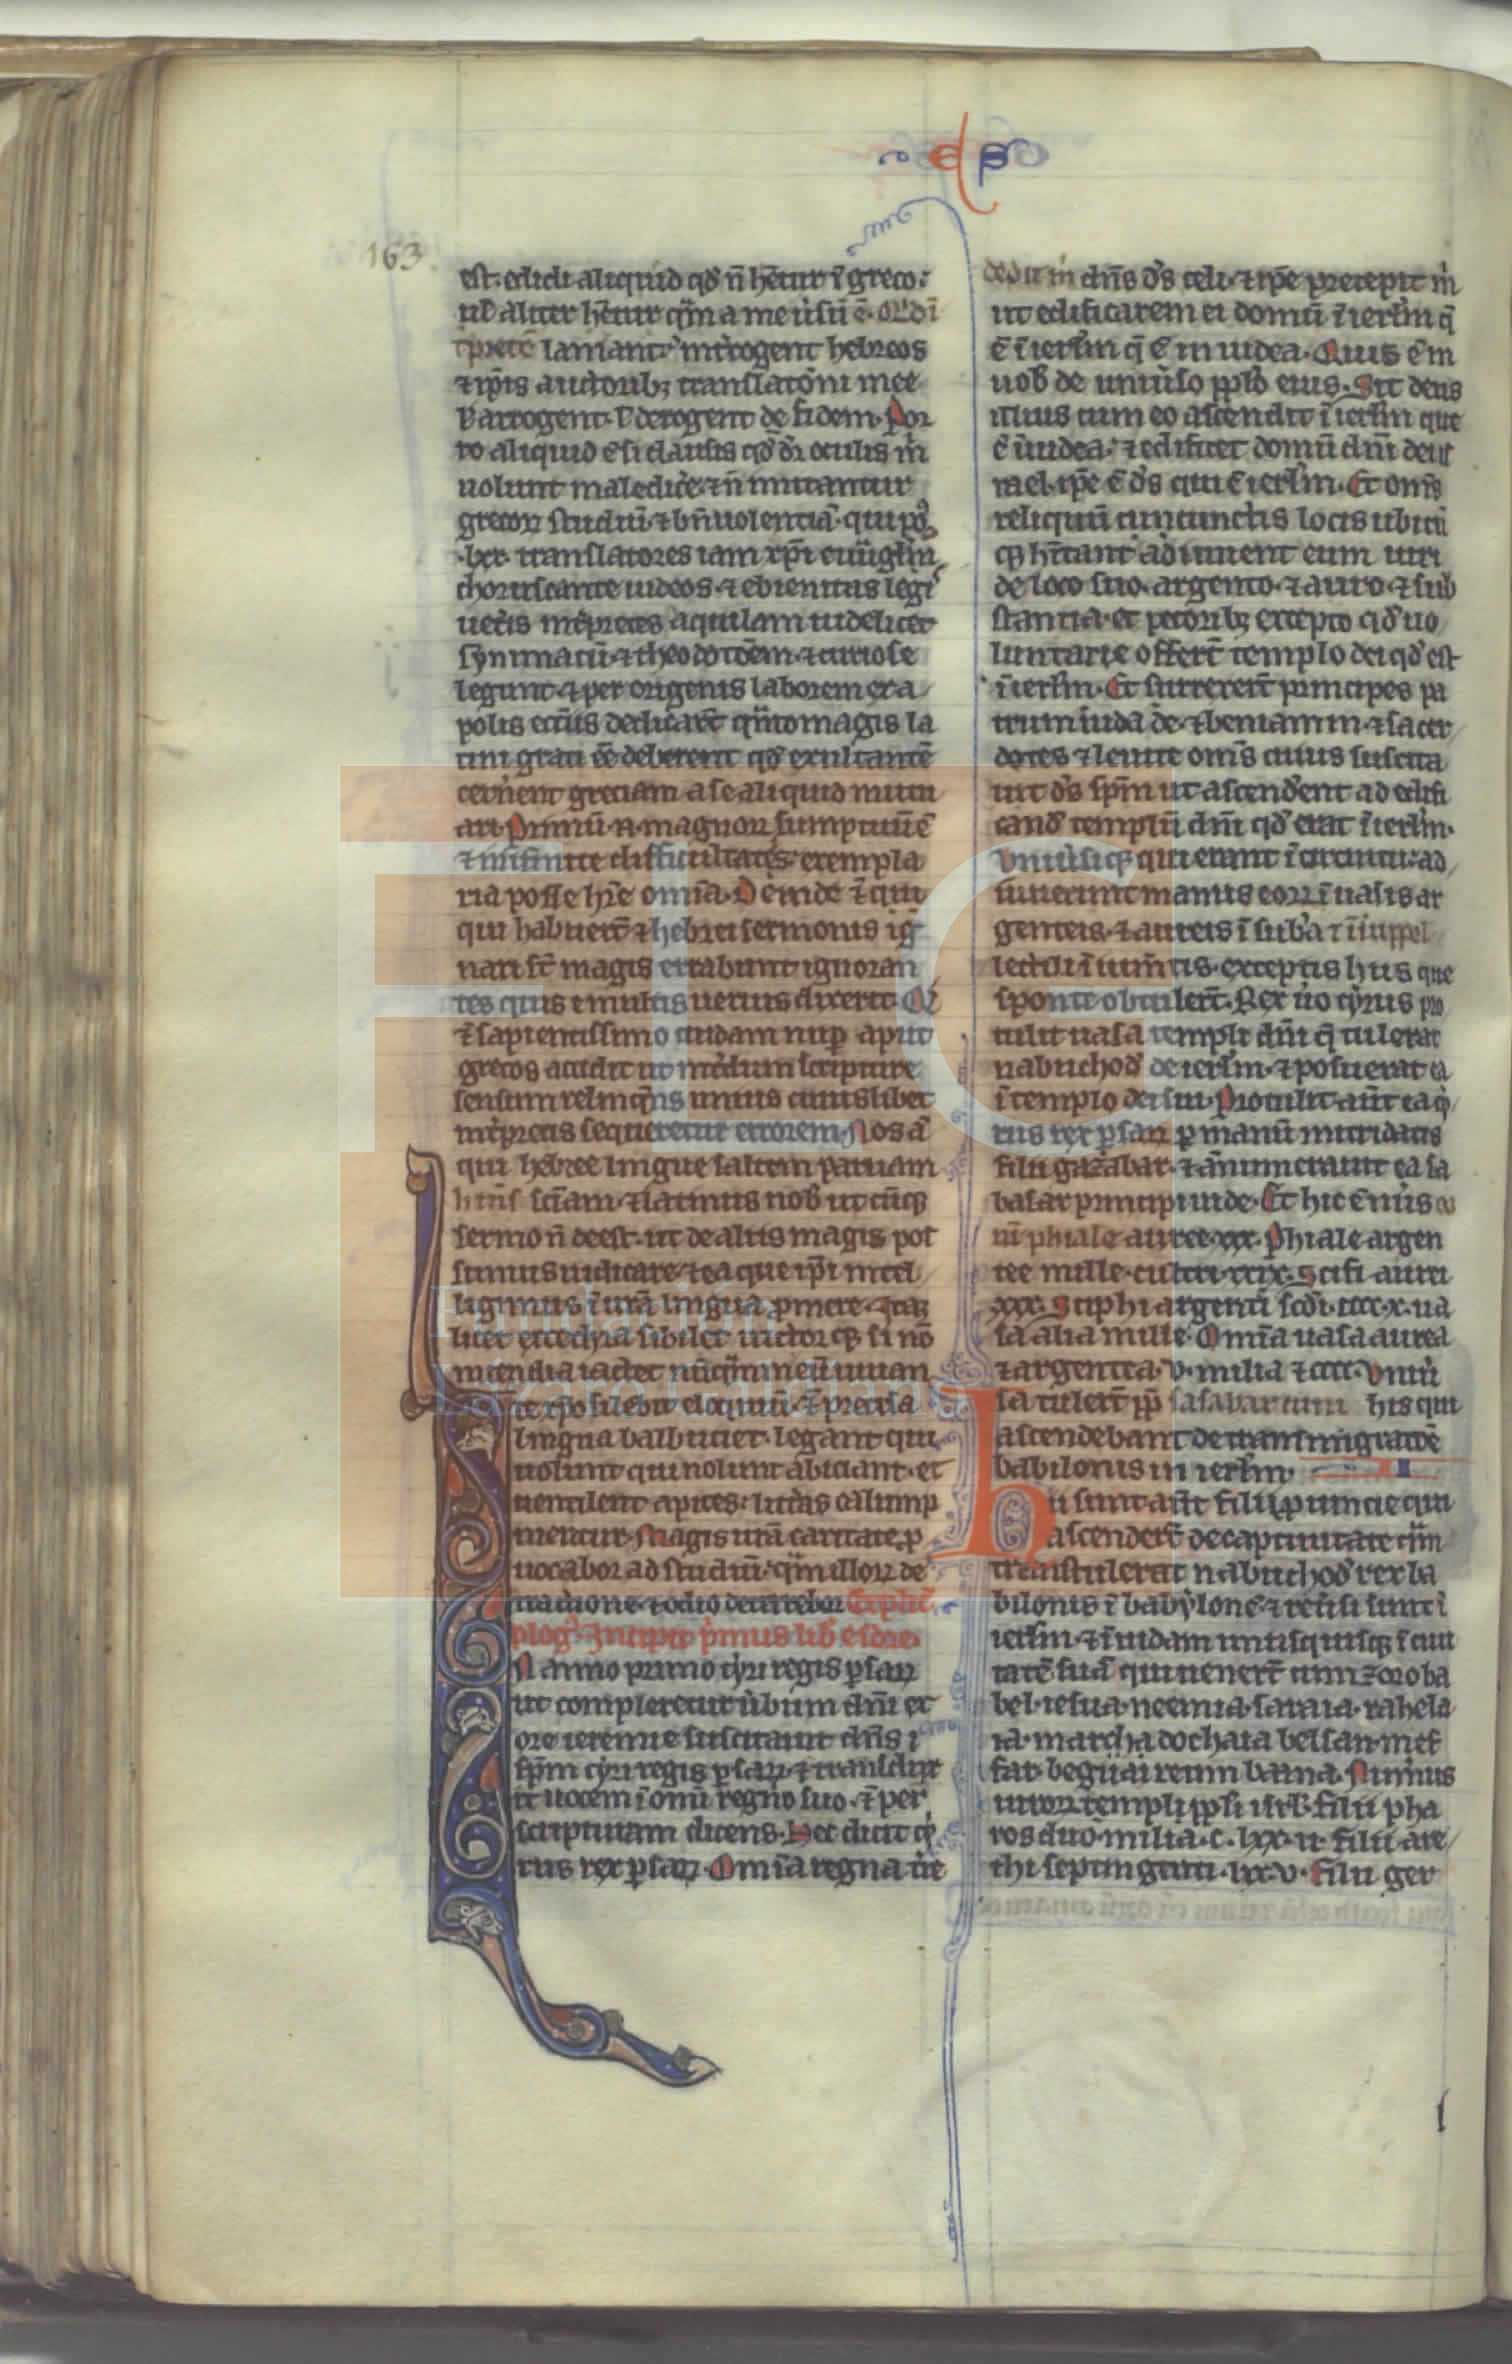 eſ ps
163
est. edidi aliquid qđ n̄ het̄ur ī greco:
ul̓ aliter het̄ur qm̄ a me ūsū ē. Qd̓ ī
tp̄retē laniant? int̓rogent hebreos
⁊ ip̄is auctorib; translat̄oni mee
l̓ arrogent. l̓ derogent de fidem. Por
ro aliquid ē si clausis qđ dr̄ oculis m̄
uolunt maledic̓e. ⁊ n̄ imitantur
grecoꝝ studiū. ⁊ bn̄uolentiā. qui pꝰ
.lxx. translatores iam xp̄i euūglīm
choruscante iudeos. ⁊ ebienitas legi
uet̓is int̓pretes aquilam uidelicet
symmacū. ⁊ theodot̄oem. ⁊ curiose
legunt. ⁊ per origenis laborem exa
polis ecc̄iis dedicar̄t. qn̄to magis la
tini grati eē deberent qđ exultantē
cern̓ent greciam a se aliquid mutu
ari. Primū .n. magnoꝝ sumptuū ē
⁊ infinite difficultatis. exempla
ria posse hr̄e omnia. Deinde ⁊ qui
qui habuer̄t ⁊ hebrei sermonis ig
nari st̄ magis errabunt ignoran
tes quis e multis uerius dixerit. Qđ
⁊ sapientissimo cuidam nup̄ aput
grecos accidit ut int̓dum scripture
sensum relinq̄ns unius cuiuslibet
int̓pretis sequeretur errorem. Nos aū
qui hebree lingue saltem paruam
hn̄s sciam. ⁊ latinus nob̓ ut cūq;
sermo n̄ deest. ut de aliis magis pos
sumus iudicare. ⁊ ea que ip̄i intel
ligimus ī nr̄ā lingua p̄mere. Itaq;
licet excedra sibilet uictor q; si nō
incendia iactet nūqm̄ meū iuuan
te xp̄o silebit eloquiū. ⁊ precisa
lingua balbuciet. legant qui
uolunt qui nolunt abiciant. et
uentilent apices. litt̓as calump
nientur. Magis ur̄ā caritate ꝓ
uocabor ad studiū. qm̄ illoꝝ de
tractione. ⁊ odio deterrebor. Explic̄
ꝓlogꝰ. Incipit p̓mus lib̓ esdre.
N anno primo cyri regis p̄saꝝ
ut compleretur ūbum dn̄i ex
ore ieremie suscitauit dn̄s
sp̄m cyri regis p̄saꝝ. ⁊ transdux
it uocem ī omi regno suo. ⁊ per
scripturam dicens. Hec dicit cy
rus rex p̄saꝝ. Omīa regna tr̄e
dedit m̄ dn̄s ds̄ celi. ⁊ ip̄e precepit m̄
ut edificarem ei domū ī ierl̄m q̄
ē ī ierl̄m q̄ ē in iudea. Quis ē in
uob̓ de uniūso pp̄lo eius. Sit deus
illius cum eo ascendit ī ierl̄m que
ē ī iudea. ⁊ edificet domū dn̄i dei isr
rael. ip̄e ē ds̄ qui ē ī ierl̄m. Et om̄s
reliquū cūcunctis locis ubicū
q; hītant adiuuent eum uiri
de loco suo. argento. ⁊ auro. ⁊ sub
stantia. et pecorib; excepto qđ uo
luntarie offert̄ templo dei qđ est
ī ierl̄m. Et surrexer̄t principes pa
trum iuda de. ⁊ beniamin. ⁊ sacer
dotes ⁊ leuite om̄s cuius suscita
uit ds̄ sp̄m ut ascend̓ent ad edifi
cand̓ templū dn̄i qđ erat ī ierl̄m.
Uniūsiq; qui erant ī circuitu. ad
iuuerunt manus eoꝝ ī uasis ar
genteis. ⁊ aureis ī suba ⁊ ī suppel
lectili ī ium̄tis. exceptis hiis que
sponte obtuler̄t. Rex ūo cyrus pro
tulit uasa templi dn̄i q̄ tulerat
nabuchod̓ de ierl̄m. ⁊ posuerat ea
ī templo dei sui. Protulit aūt ea cy
rus rex p̄saꝝ p̄ manū mitridatis
filii gazabar. ⁊ ānumerauit ea sa
basar principi iude. Et hic ē nūs eo
rū phiale auree .xxx. Phiale argen
tee mille. cultri .xxix. Scifi aurei
.xxx. Sciphi argenti scd̓i .cccc.x. ua
sa alia mille. Omīa uasa aurea
⁊ argentea .v. milia ⁊ cccc. Uniū
sa tuler̄t pp̄ sasabarum his qui
ascendebant de transmigratōe
babilonis in ierl̄m. II
Hii sunt aūt filii ꝓuincie qui
ascender̄t de captiuitate qm̄
transtulerat nabuchod̓ rex ba
bilonis ī babylonē. ⁊ reūsi sunt ī
ierl̄m. ⁊ ī iudam unusquisq; ī ciui
tatē suā qui uenert̄ cum zoroba
bel. iesua. neemia. saraia. rahela
ia. marcha dochaia belsan. mes
far. beguai reum baana. Num̄us
uiroꝝ templi pp̄li isrl̓. filii pha
ros duo milia .c. lxx. ii. filii are
thi septingenti .lxx.v. Filii ger
FLG
Fundación
Lázaro Galdiano